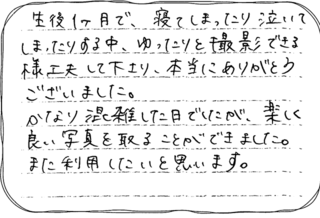 生後1ヶ月で、寝てしまったり泣いて
しまったりする中、ゆったりと撮影できる
様工夫して下さり、本当にありがとう
ございました。
かなり混雑した日でしたが、楽しく
良い写真を取ることができました。
また利用したいと思います。